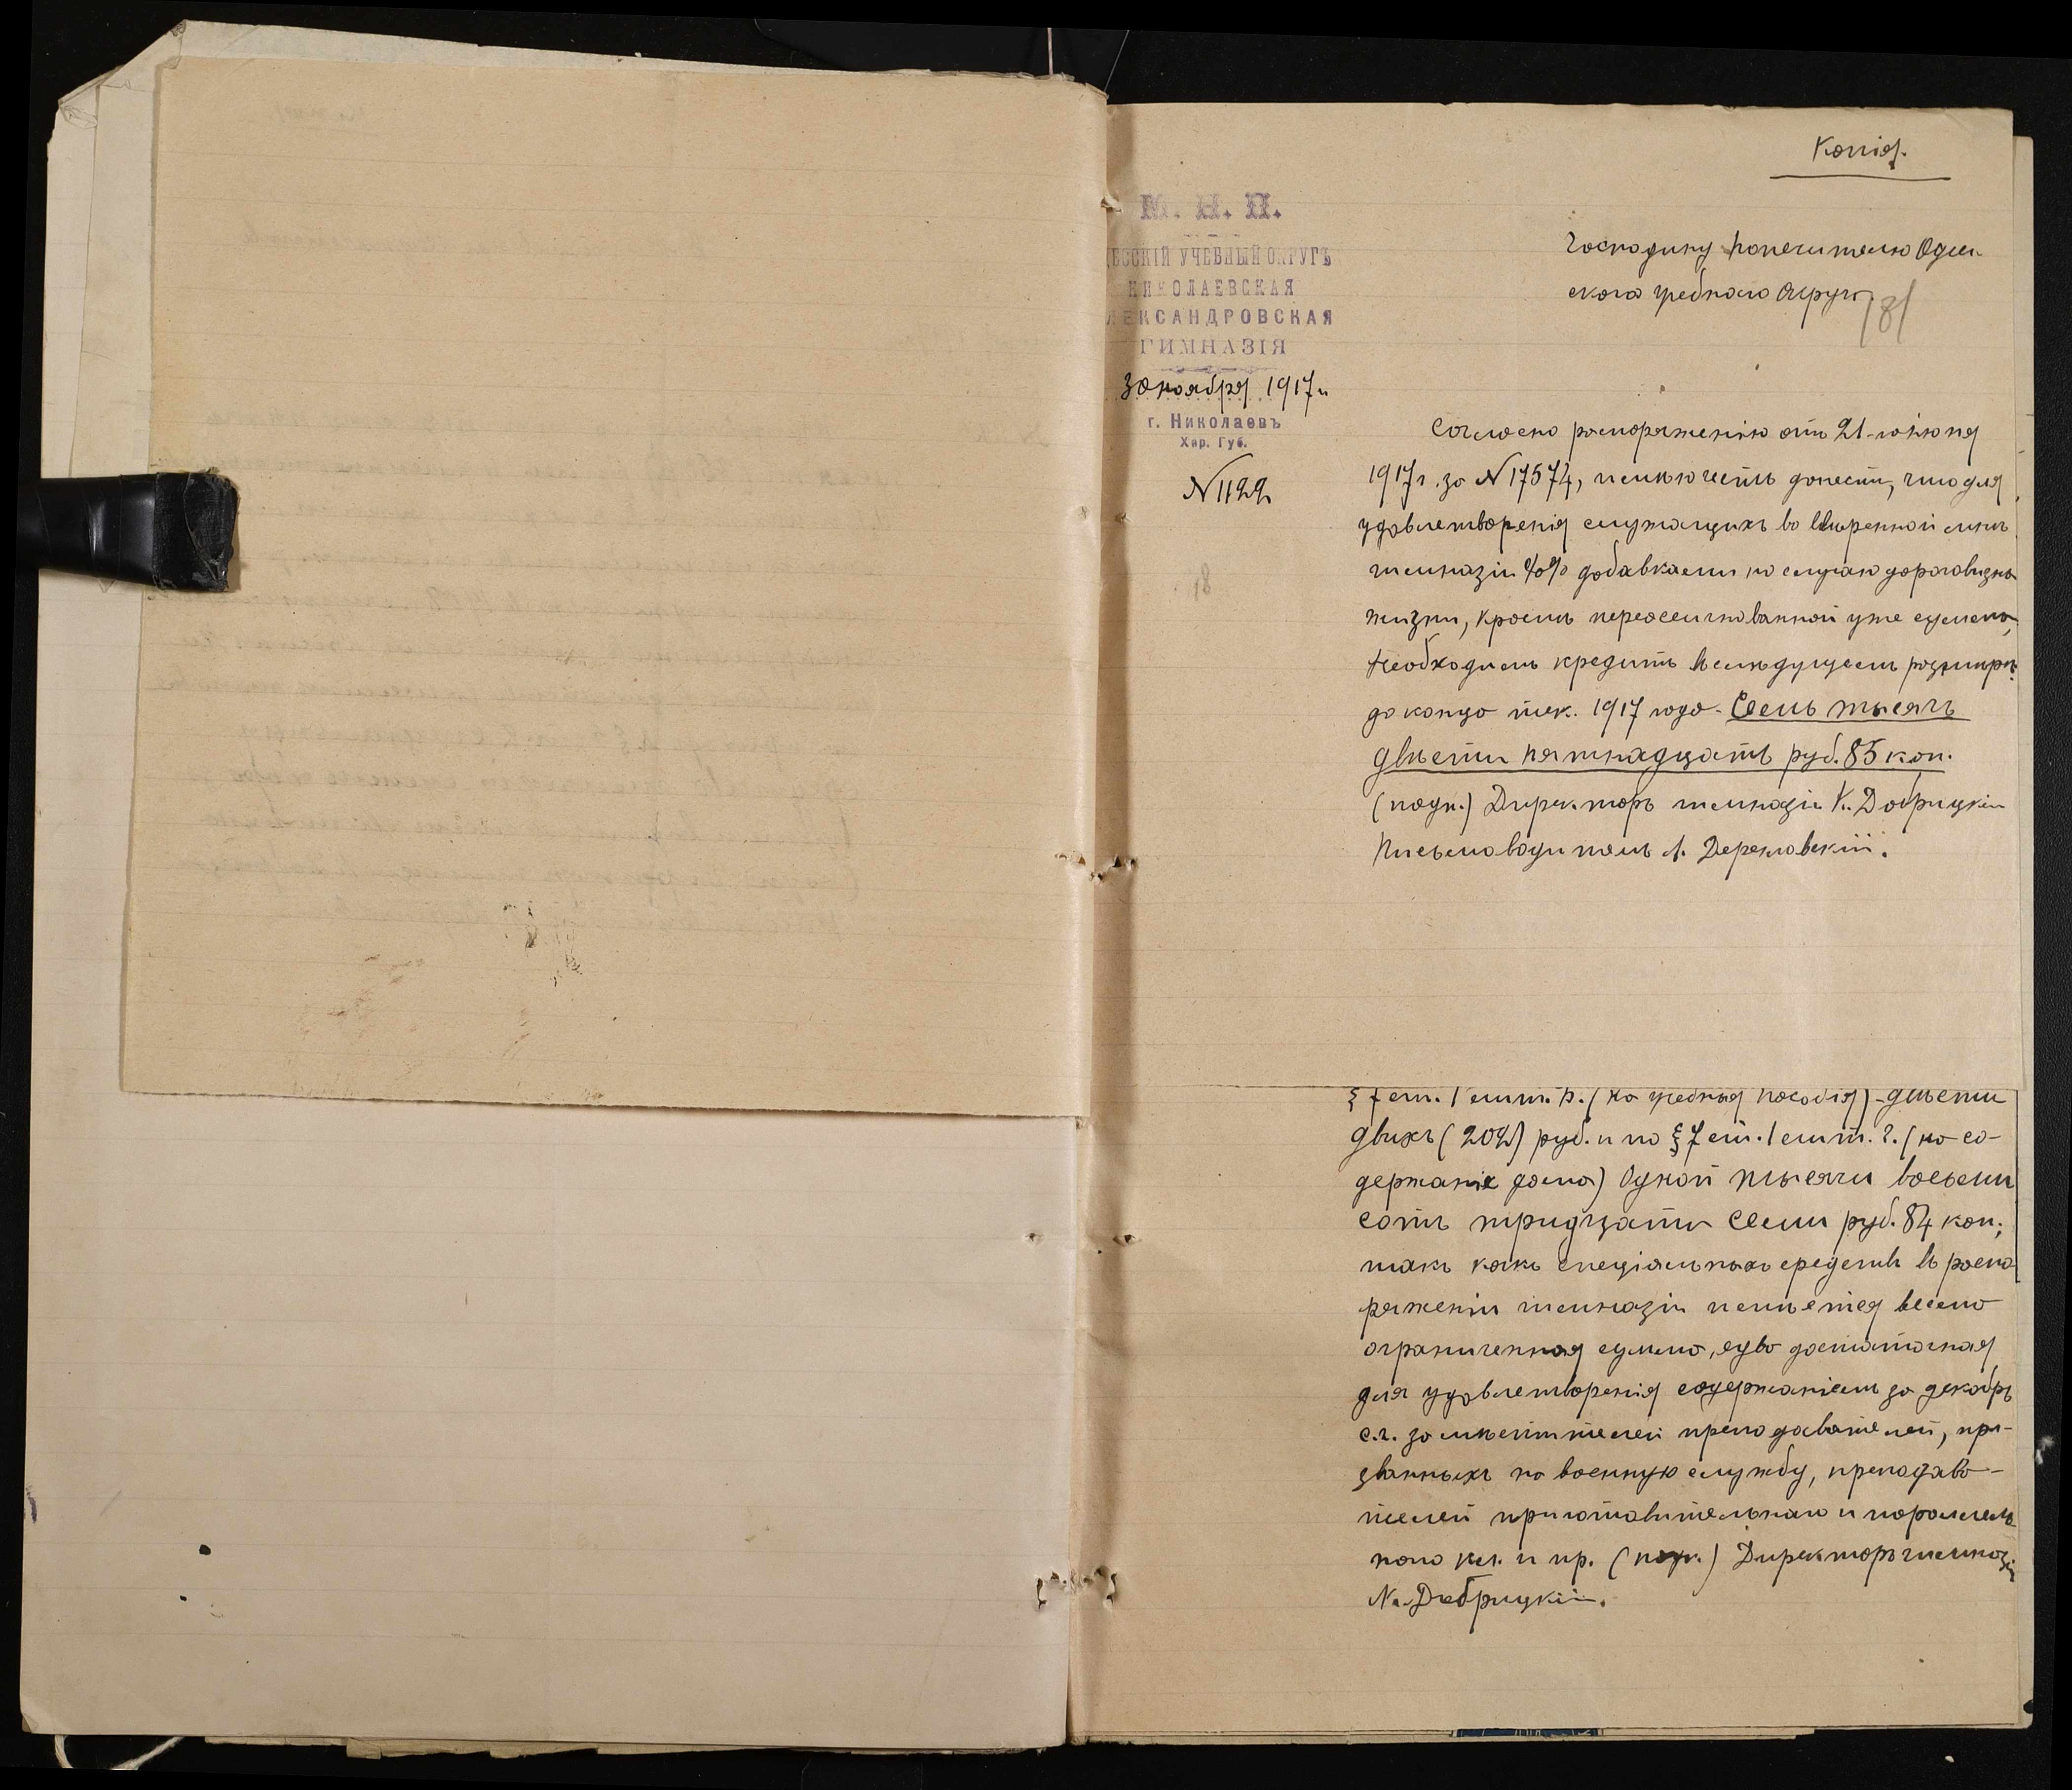 Копія.
М. Н. П.
ДЕССКІЙ УЧЕБНЫЙ ОКРУГЪ
НИКОЛАЕВСКАЯ
ЛЕКСАНДРОВСКАЯ
ГИМНАЗІЯ
30 ноября 1917 г.
г. Николаевъ
Хер. Губ.
№ 1122
Господину Попечителю Одес-
скаго учебнаго Округа
181
Согласно распоряженію отъ 21-го іюня
1917 г. за № 17574, имѣю честь донести, что для
удовлетворенія служащихъ во ввѣренной мнѣ
гимназіи %% добавками по случаю дороговизны
жизни, кромѣ переассигнованной уже суммы,
необходимъ кредитъ въ слѣдующемъ размѣрѣ
до конца тек. 1917 года - Семь тысячъ
двѣсти пятнадцать руб. 85 коп.
(подп.) Директоръ гимназіи К. Добрицкій
Письмоводитель Л. Дерекловскій.
18
§ 7 ст. 1 лит. в. (на учебныя пособія) - двѣсти
двухъ (202) руб. и по § 7 ст. 1 лит. г. (на со-
держаніе дома) Одной тысячи восьми
сотъ тридцати семи руб. 84 коп.,
такъ какъ спеціальныхъ средствъ въ распо
ряженіи гимназіи имѣется весьма
ограниченная сумма, едва достаточная
для удовлетворенія содержаніемъ за декабрь
с.г. замѣстителей преподавателей, при-
званныхъ на военную службу, преподава-
телей приготовительнаго и параллель
наго кл. и пр. (подп.) Директоръ гимназіи
К. Добрицкій.